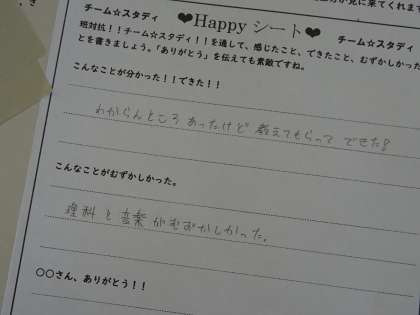 チーム☆スタディ ❤Happy シート❤ チーム☆スタディ
班対抗!!チーム☆スタディ!!を通して、感じたこと、できたこと、むずかしかった
とを書きましょう。「ありがとう」を伝えても素敵ですね。
こんなことが分かった!!できた!!
わからんところあったけど 教えてもらって できた!
こんなことがむずかしかった。
理科と音楽がむずかしかった。
〇〇さん、ありがとう!!